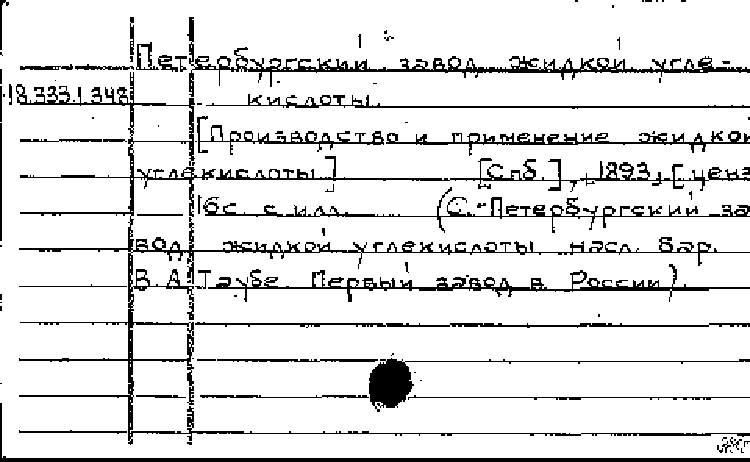 Петербургский завод жидкой угле-
18.333.1.343 кислоты.
[Производство и применение жидкой
углекислоты.] [Спб.], 1893, [ценз
16с. с илл. (С.-Петербургский за-
вод жидкой углекислоты насл. бар.
В. А. Таубе. Первый завод в России).